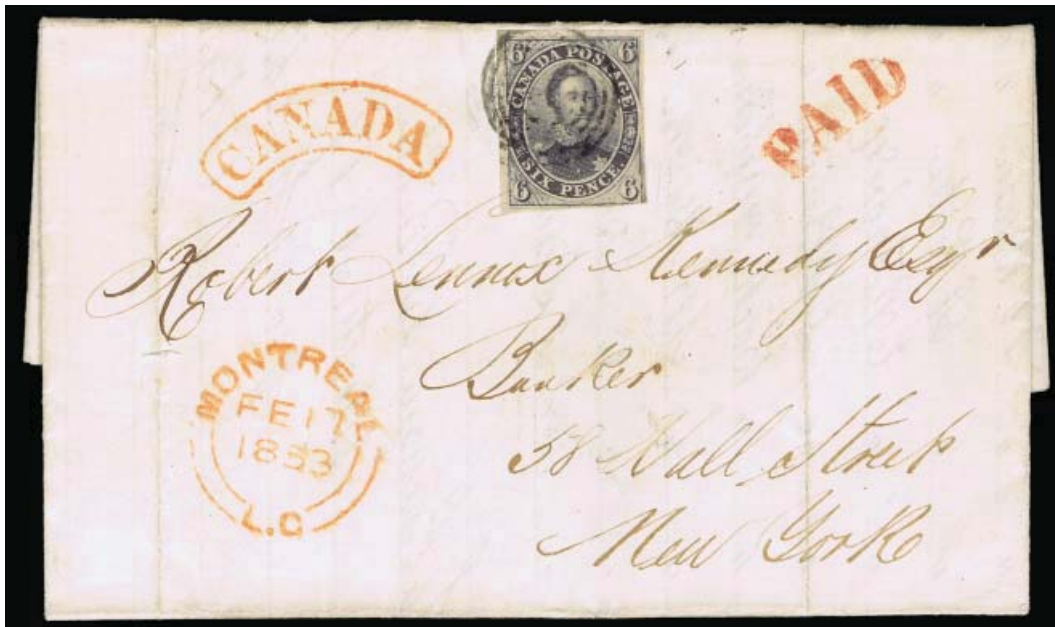 CANADA
6 CANADA POSTAGE 6
6 SIX PENCE. 6
PAID
Robert Lennox Kennedy Esqr
Banker
58 Wall Street
New York
MONTREAL
FE 17
1853
L.C